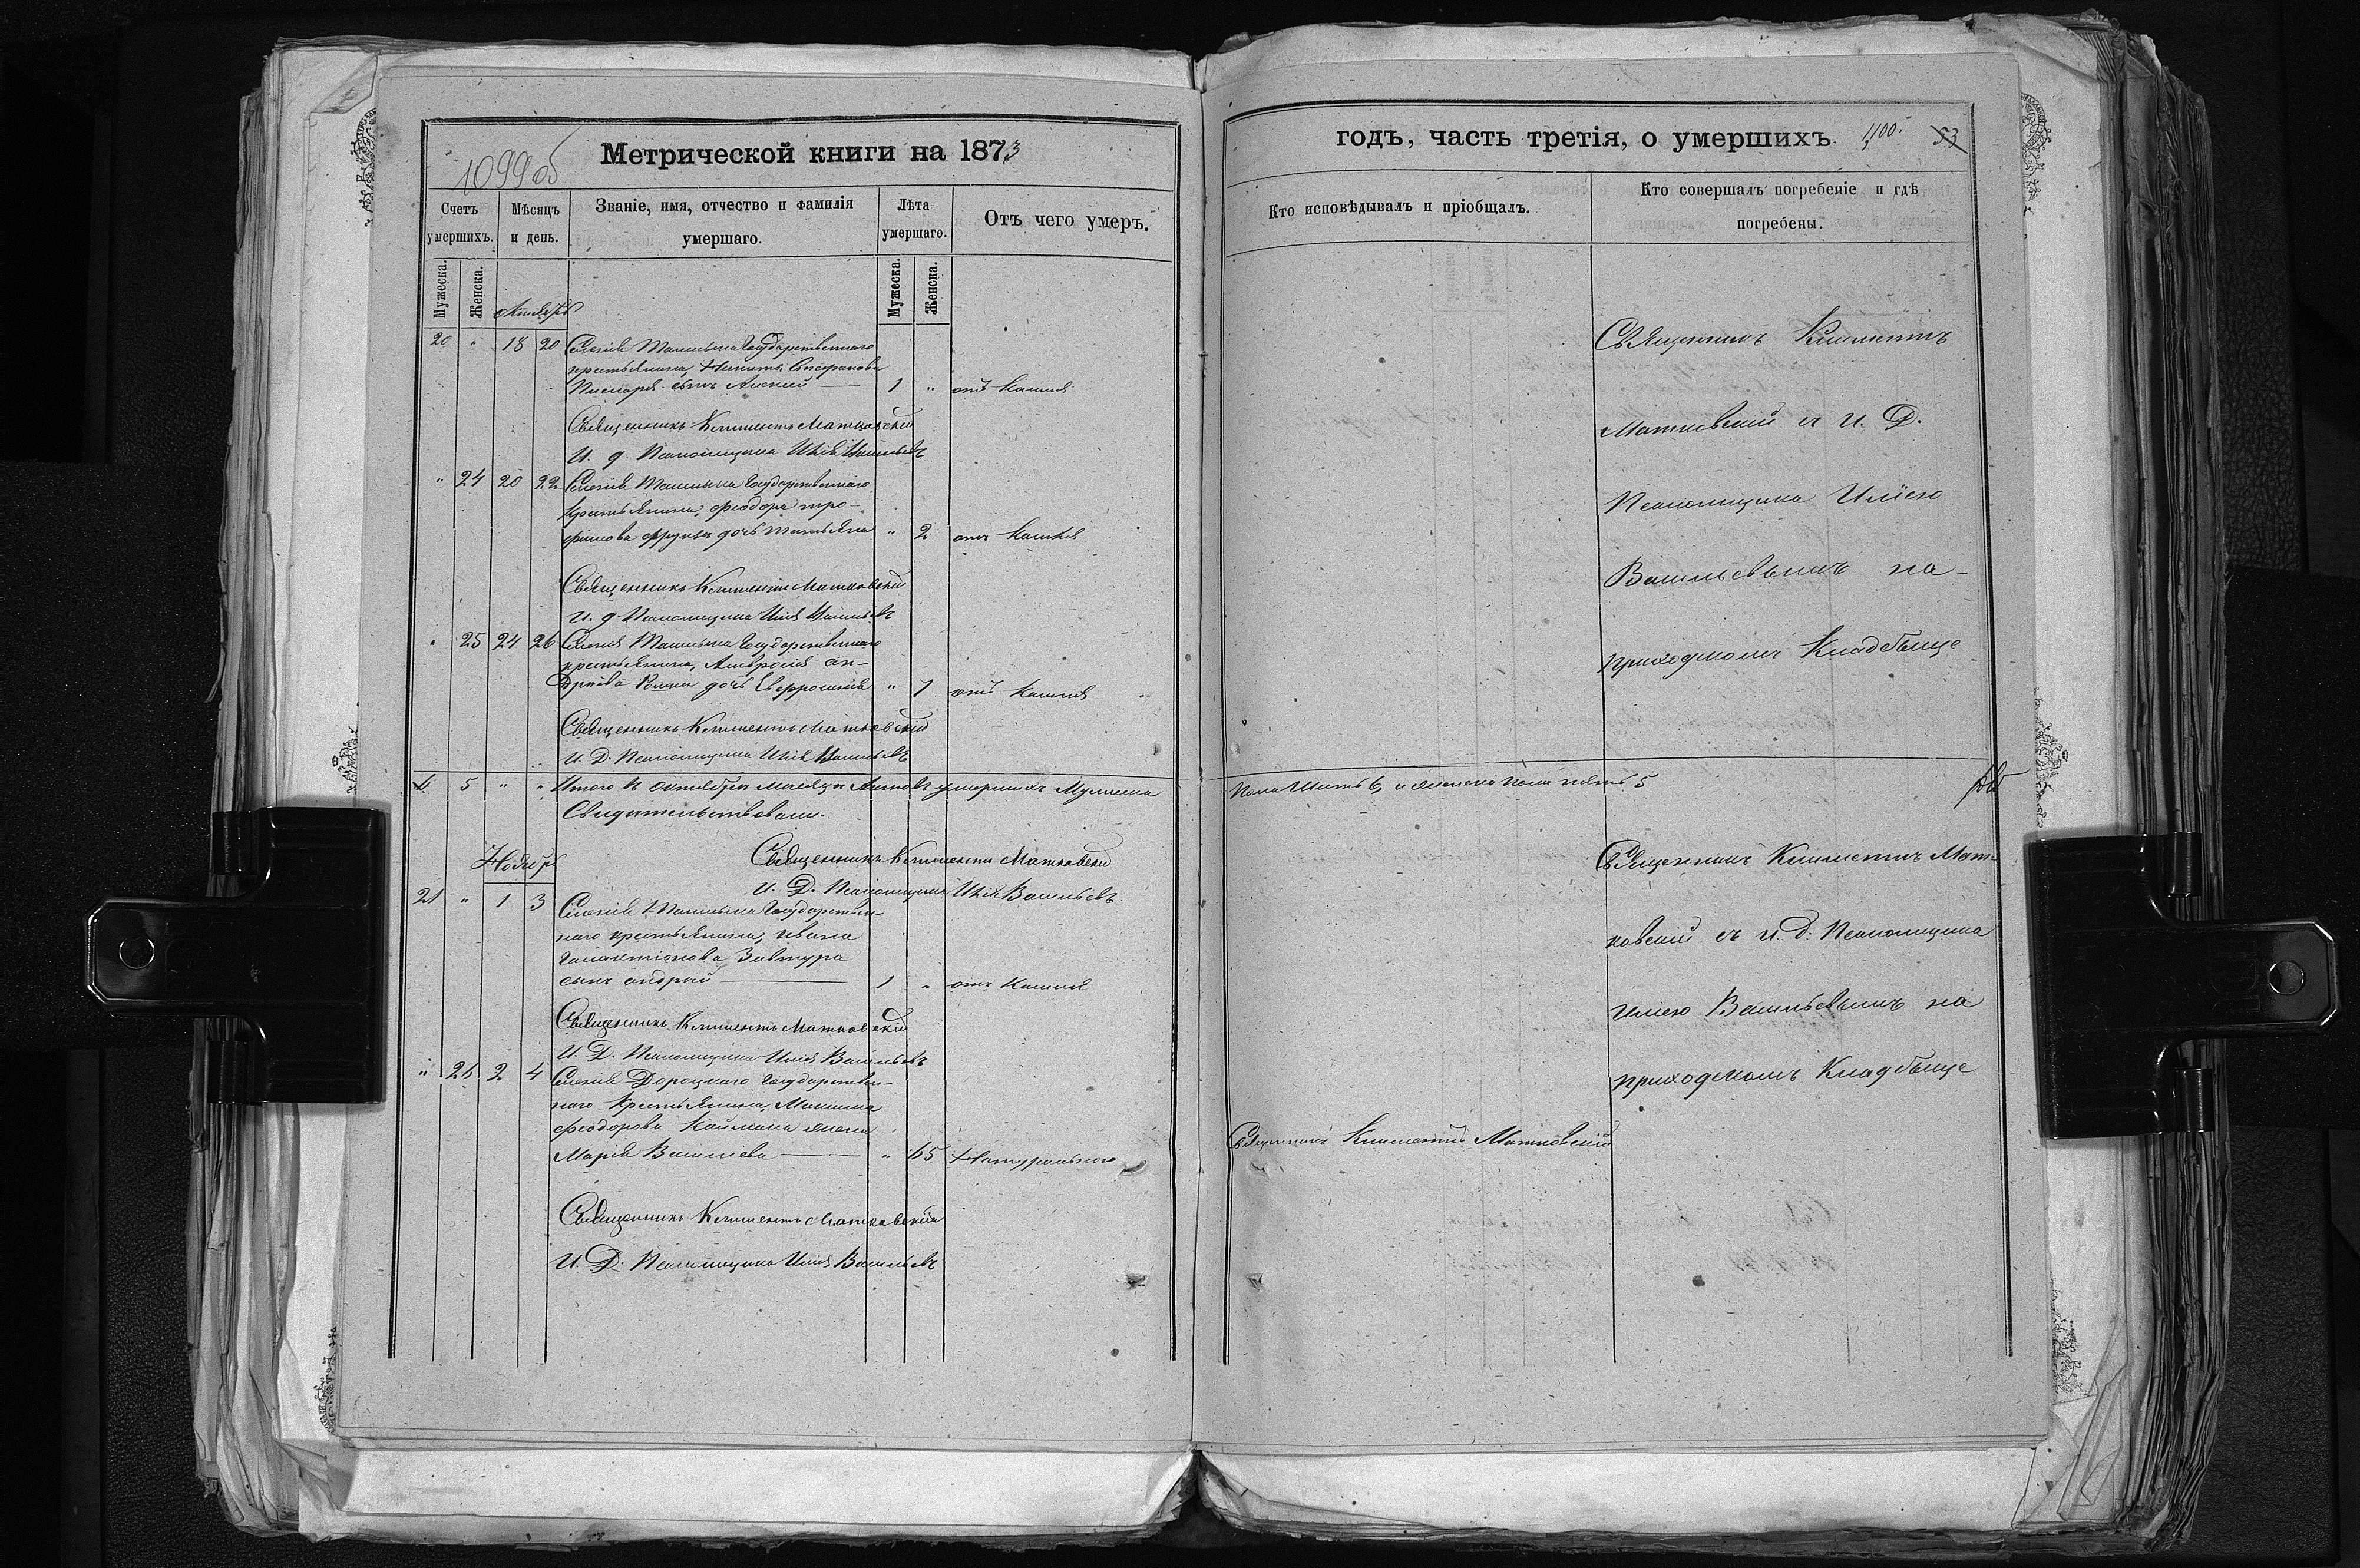 Метрической книги на 1873
1099 об
Счетъ умершихъ.
Мѣсяцъ и день.
Званіе, имя, отчество и фамилія умершаго.
Лѣта умершаго.
Отъ чего умеръ.
Мужеска.
Женска.
Мужеска.
Женска.
Октябрь
20 " 18 20 Селенія Ташлыка Государственнаго
крестьянина, Никиты
сынъ Алексей 1 " отъ Кашля
Священникъ Климентъ Матковскій
И. д. Псаломщика Илія Васильевъ
" 24 20 22 Селенія Ташлыка Государственнаго
Крестьянина, Феодора Тро-
фимова дочь Татьяна " 2 отъ Кашля
Священникъ Климентъ Матковскій
И. д. Псаломщика Илія Васильевъ
" 25 24 26 Селенія Ташлыка Государственнаго
крестьянина, Амвросія Ан-
дреева дочь Евфросинія " 1 отъ Кашля
Священникъ Климентъ Матковскій
И. Д. Псаломщика Илія Васильевъ
6 5 " " Итого въ Октябрѣ месяцѣ умершихъ Мужеска
Свидетельствовали.
Священникъ Климентъ Матковскій
И. Д. Псаломщика Илія Васильевъ
Ноябрь
21 " 1 3 Селенія Ташлыка Государствен-
наго крестьянина, Ивана
Галактіонова
сынъ Андрей 1 " отъ Кашля
Священникъ Климентъ Матковскій
И. Д. Псаломщика Илія Васильевъ
" 26 2 4 Селенія Дороцкаго Государствен-
наго Крестьянина, Максима
Феодорова Каймака жена
Марія Василіева " 65 Натурально
Священникъ Климентъ Матковскій
И. Д. Псаломщика Илія Васильевъ
годъ, часть третія, о умершихъ.
1100.
53
Кто исповѣдывалъ и пріобщалъ.
Кто совершалъ погребеніе и гдѣ погребены.
Священникъ Климентъ
Матковскій съ И. Д.
Псаломщика Иліею
Васильевымъ на
приходскомъ Кладбыще
пола Шесть 6, и женска пола пять 5
Священникъ Климентъ Мат-
ковскій съ И. д. Псаломщика
Иліею Васильевымъ на
приходскомъ Кладбыще
Священникъ Климентій Матковскій